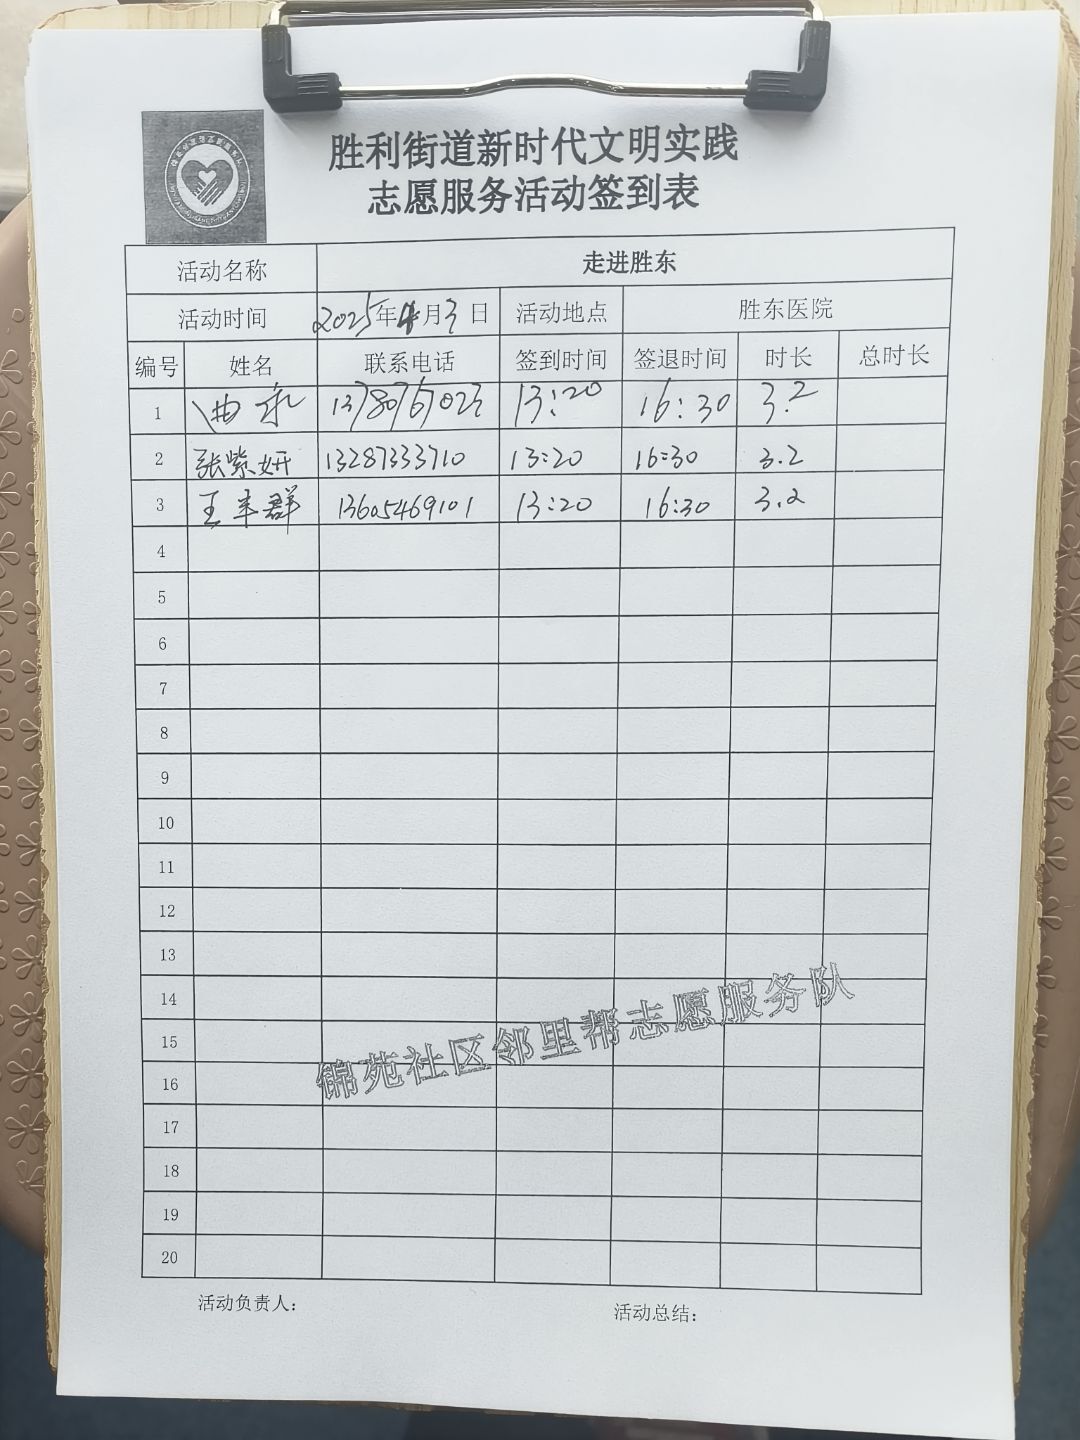 胜利街道新时代文明实践
志愿服务活动签到表
活动名称 走进胜东
活动时间 2025年4月3日 活动地点 胜东医院
编号 姓名 联系电话 签到时间 签退时间 时长 总时长
1 13:20 16:30 3.2
2 张紫妍 13287333710 13:20 16:30 3.2
3 王丰群 13605469101 13:20 16:30 3.2
4
5
6
7
8
9
10
11
12
13
14
15
16
17
18
19
20
锦苑社区邻里帮志愿服务队
活动负责人： 活动总结：